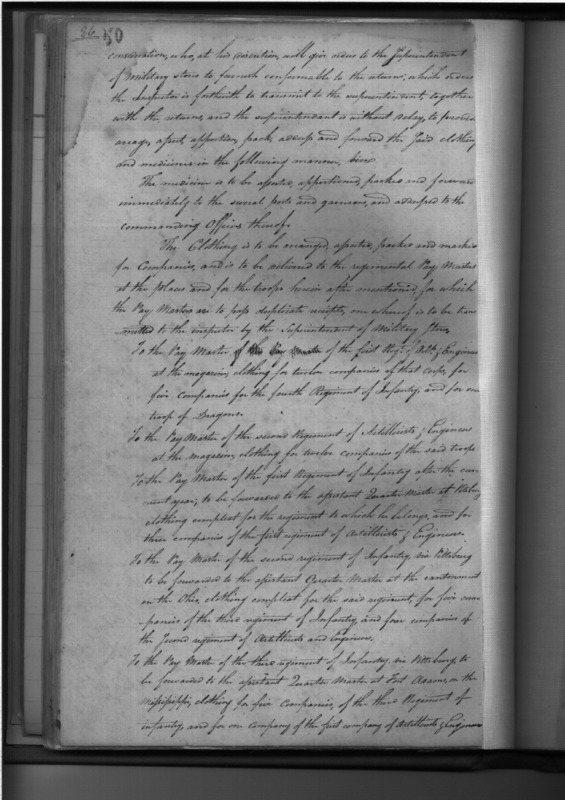 26 50
consideration, who, at his discretion, will give orders to the Superintendent
of Military stores to furnish conformable to the returns; which orders
the Inspector is forthwith to transmit to the superintendent, together
with the returns, and the superintendant is without delay, to
arrange, assort, apportion, pack, and forward the said clothing
and medicines in the following manner,
The medicine is to be assorted, apportioned, packed and forwarded
immediately to the several posts and garrisons, and addressed to the
commanding Officer thereof.
The Clothing is to be arranged, assorted, packed and marked
for Companies, and is to be delivered to the regimental Pay Masters
at the places and for the troops herein after mentioned, for which
the Pay Masters are to pass duplicate receipts, one whereof is to be trans
mitted to the inspector by the Superintendent of Military Stores
To the Pay Master of the first Regt. of Artts. & Engineers
at the magazine, clothing for twelve companies of that corps, for
five companies for the fourth Regiment of Infantry, and for one
troop of Dragoons.
To the Pay Master of the second Regiment of Artillerists & Engineers
at the magazine, clothing for twelve companies of the said troops
To the Pay Master of the first Regiment of Infantry after the cur
rent year, to be forwarded to the assistant Quarter Master at Pittsburg
clothing compleat for the regiment to which he belongs, and for
three companies of the first regiment of Artillerists & Engineers.
To the Pay Master of the second regiment of Infantry, via Pittsburg
to be forwarded to the assistant Quarter Master at the cantonment
on the Ohio, clothing compleat for the said regiment, for five com-
panies of the third regiment of Infantry, and four companies of
the second regiment of Artillerists and Engineers.
To the Pay Master of the third regiment of Infantry, via Pittsburg, to
be forwarded to the assistant Quarter Master at Fort Adams on the
Mississippi, clothing for five companies, of the third Regiment of
infantry, and for one company of the first company of Artillerists & Engineers